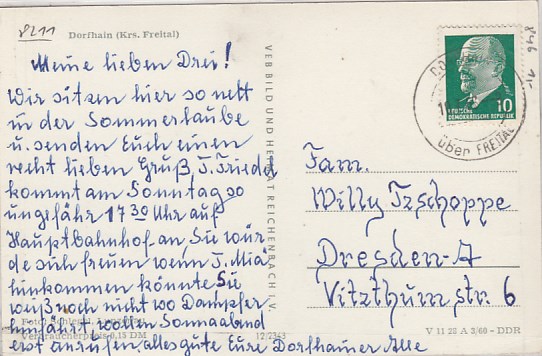 8211
Dorfhain (Krs. Freital)
Meine lieben Drei!
Wir sitzen hier so nett
in der Sommerlaube
u. senden Euch einen
recht lieben Gruß, T. Friedel
kommt am Sonntag so
ungefähr 17 30 Uhr auf
Hauptbahnhof an, Sie wür-
de sich freuen wenn T. Mia
hinkommen könnte Sie
weiß noch nicht wo Dampfer
hinfährt, wollen Sonnabend
erst anrufen, alles gute Eure Dorfhainer Alle
Foto
Verbraucherpreis 0,15 DM
12/2343
VEB BILD UND HEIMAT REICHENBACH I. V.
846
1,-
10
DEUTSCHE
DEMOKRATISCHE REPUBLIK
über FREITAL
Fam.
Willy Tzschoppe
Dresden-A
Vitzthum, str. 6
V 11 28 A 3/60 - DDR